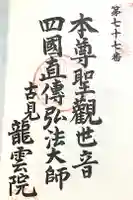 第七十七番
本尊聖觀世音
四國直傳弘法大師
吉見
龍雲院